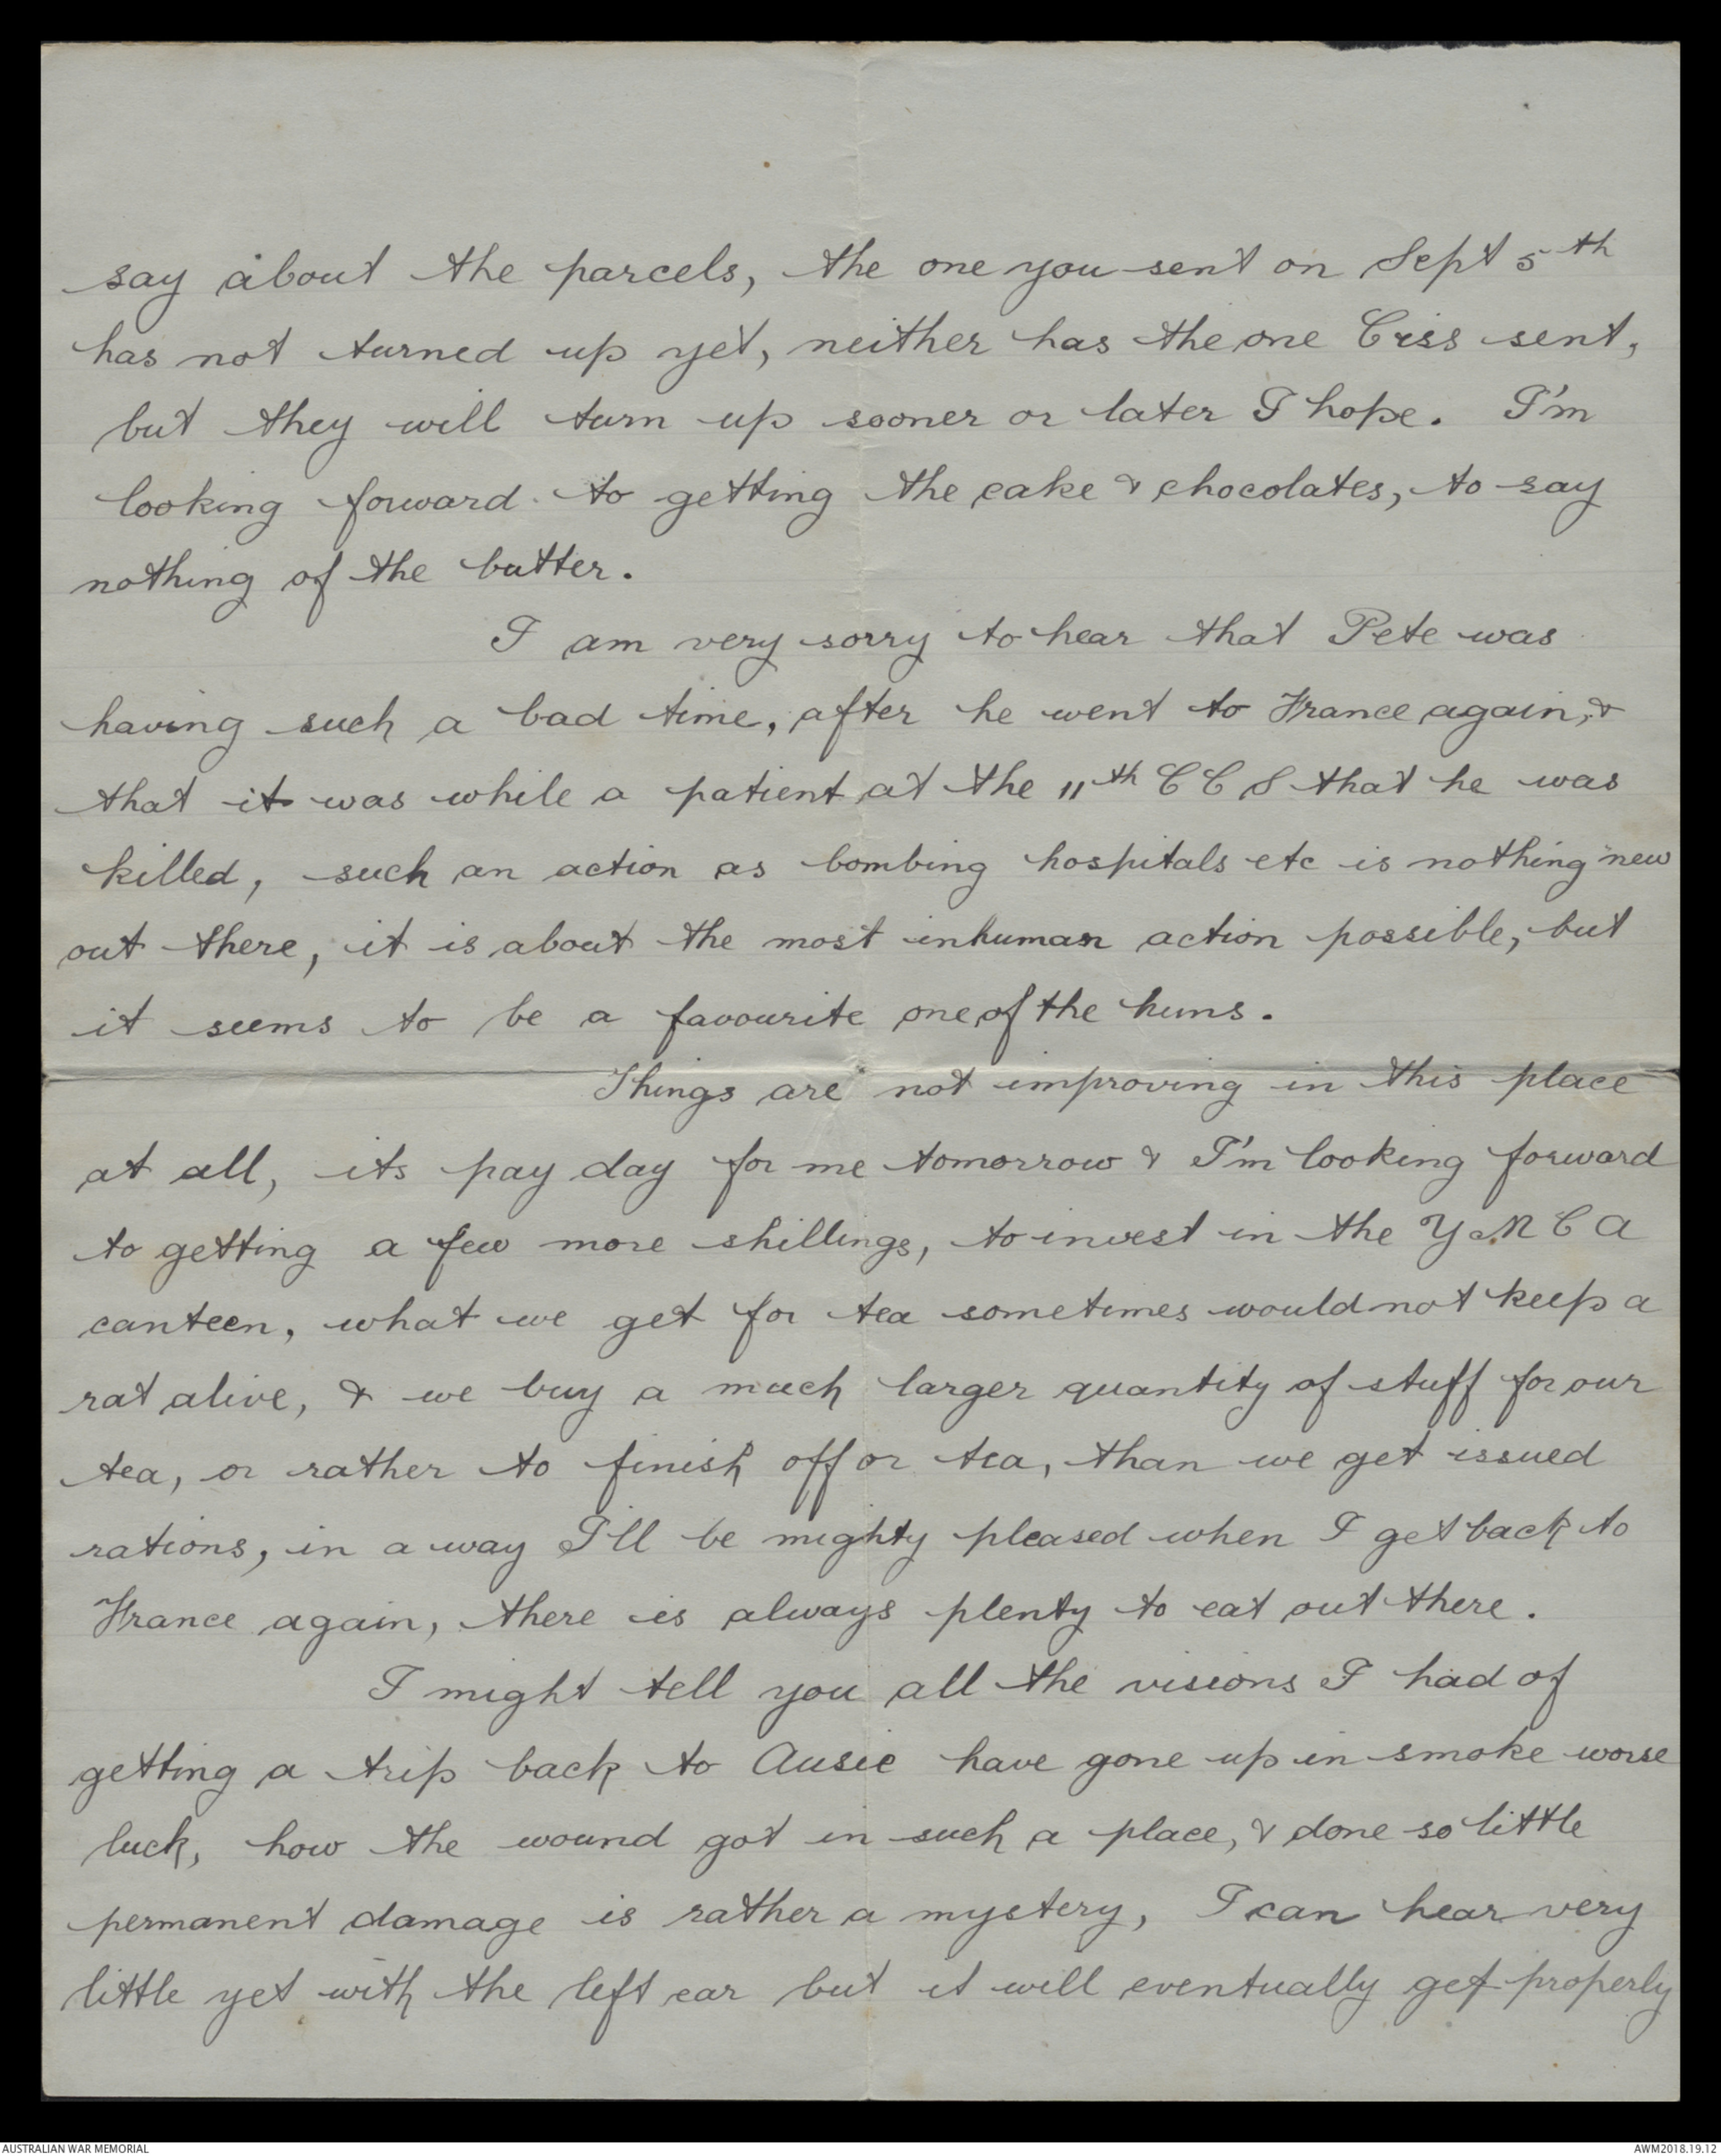 say about the parcels, the one you sent on Sept 5th
has not turned up yet, neither has the one Criss sent,
but they will turn up sooner or later I hope. I'm
looking forward to getting the cake & chocolates, to say
nothing of the butter.
I am very sorry to hear that Pete was
having such a bad time, after he went to France again, &
that it was while a patient at the 11th CCS that he was
killed, such an action as bombing hospitals etc is nothing new
out there, it is about the most inhuman action possible, but
it seems to be a favourite one of the huns.
Things are not improving in this place
at all, its pay day for me tomorrow & I'm looking forward
to getting a few more shillings, to invest in the Y.M C A
canteen, what we get for tea sometimes would not keep a
rat alive, & we buy a much larger quantity of stuff for our
tea, or rather to finish off or tea, than we get issued
rations, in a way I'll be mighty pleased when I get back to
France again, there is always plenty to eat out there.
I might tell you all the visions I had of
getting a trip back to Ausie have gone up in smoke worse
luck, how the wound got in such a place, & done so little
permanent damage is rather a mystery, I can hear very
little yet with the left ear but it will eventually get properly
AUSTRALIAN WAR MEMORIAL
AWM2018.19.12